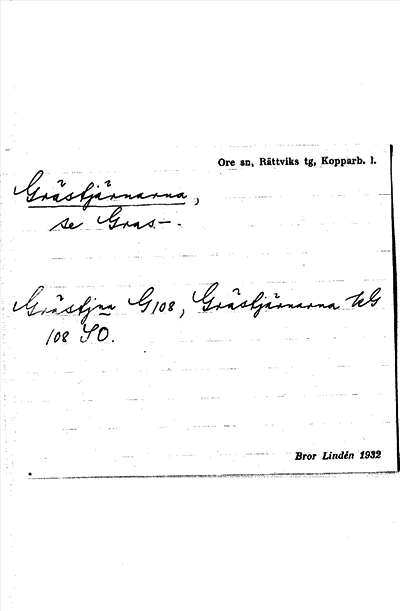 Ore sn, Rättviks tg, Kopparb. l.
Grästjärnarna,
se Gras-.
Grästjna G108, Grästjärnarna HG
108 SO.
Bror Lindén 1932